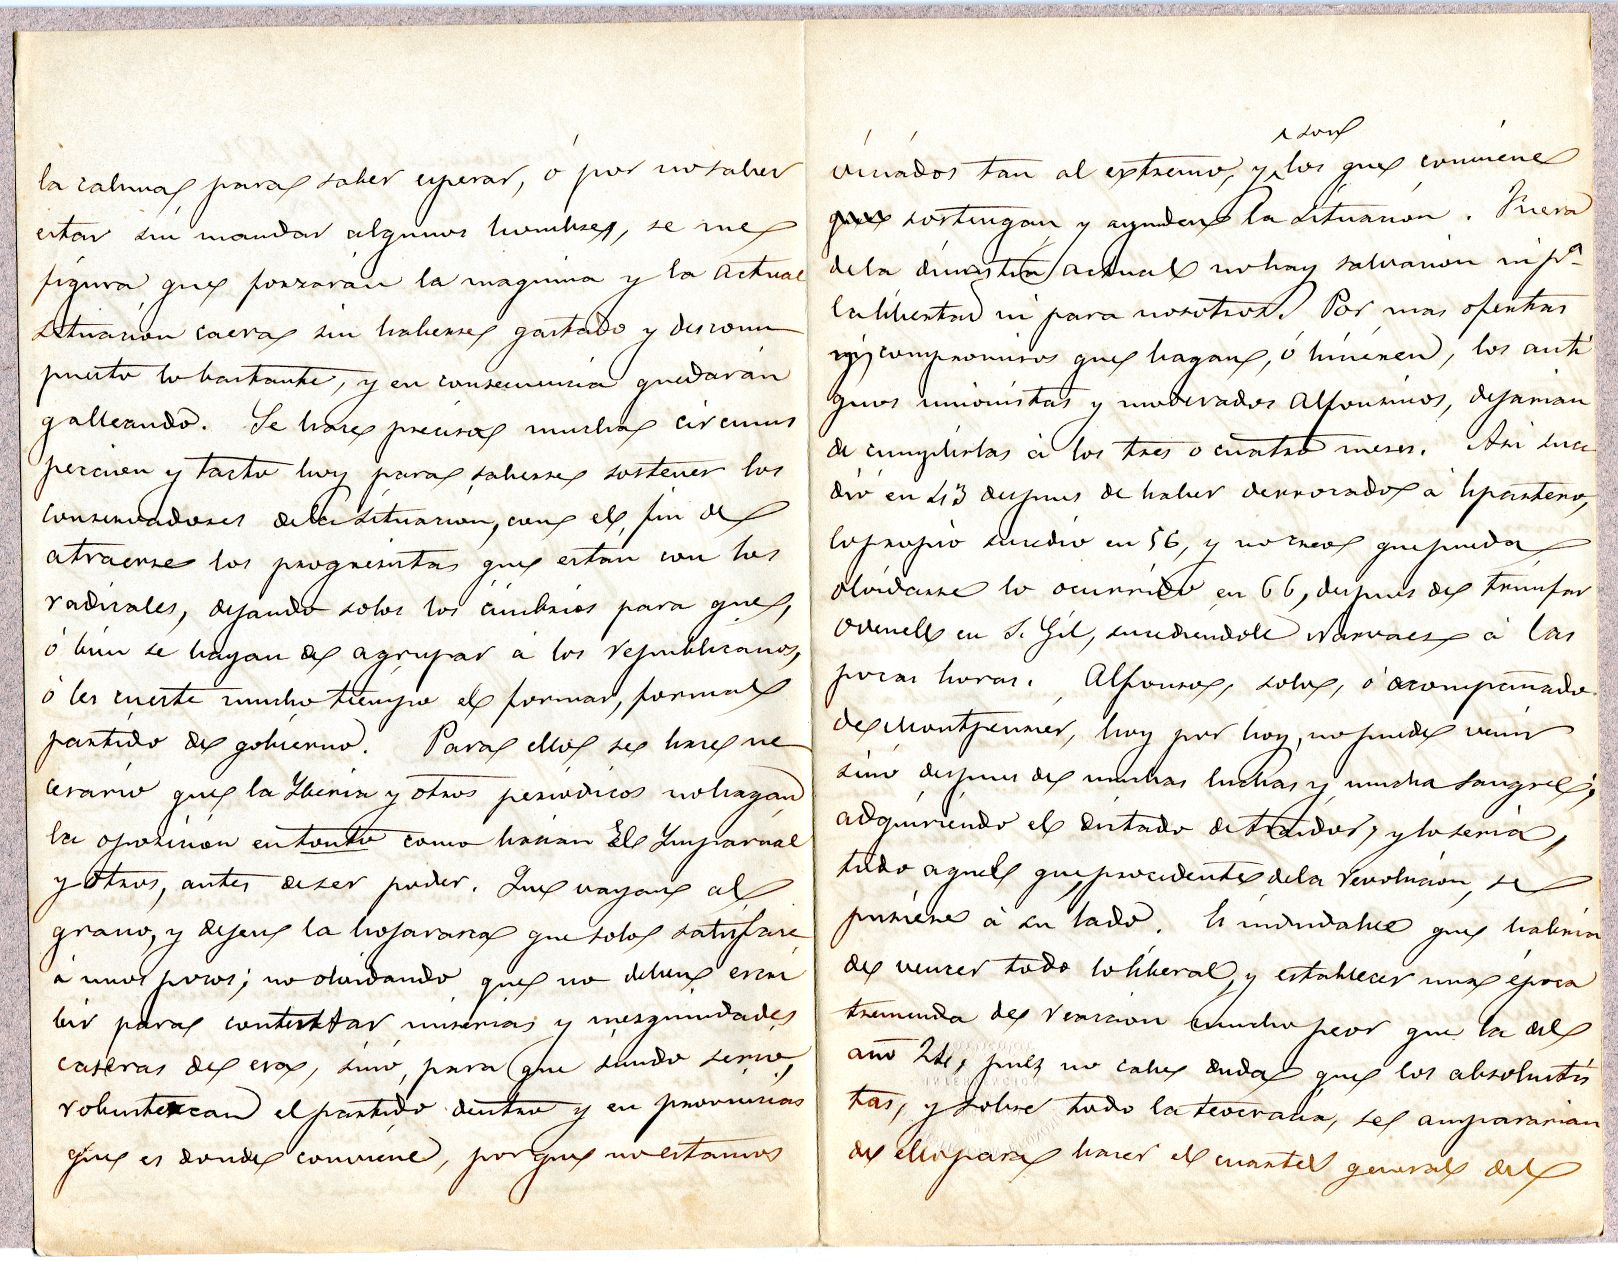 la calma para saber esperar, ó por no saber
estar sin mandar algunos hombres, se me
figura que forzarán la maquina y la actual
situacion caera sin haberse gastado y descom
puesto lo bastante, y en consecuencia quedarán
galleando. Se hace precisa mucha circuns
peccion y tacto hoy para saberse sostener los
conservadores dela situacion, con el fin de
atraerse los progresistas que estan con los
radicales, dejando solos los cimbrios para que,
ó bien se hayan de agrupar á los republicanos,
ó les cueste mucho tiempo el formar, formal
partido de gobierno. Para ello se hace ne
cesario que la Yberia y otros periodicos no hagan
la oposicion en tonto como hacian El Ymparcial
y otros, antes de ser poder. Que vayan al
grano, y dejen la hojarasca que solo satisface
á unos pocos; no olvidando que no deben escri
bir para contestar miserias y mezquindades
caseras de esa, sino, para que siendo serio,
robustezcan el partido dentro y en provincias
que es donde conviene, porque no estamos
viciados tan al extremo, y son los que conviene
sostengan y ayuden la situacion. Fuera
dela dinastia actual no hay salvacion ni pª
la libertad ni para nosotros. Por mas ofertas
y compromisos que hagan, ó hiciesen, los anti
guos unionistas y moderados Alfonsinos, dejarian
de cumplirlas á los tres o cuatro meses. Asi suce
dió en 43 despues de haber derrocado á Espartero,
lo propio sucedió en 56, y no creo que pueda
olvidarse lo ocurrido en 66, despues de triunfar
Odonell en S. Gil, sucediendole Narvaez á las
pocas horas. Alfonso, solo, ó acompañado
de Montpensier, hoy por hoy, no puede venir
sinó despues de muchas luchas y mucha sangre;
adquiriendo el dictado de traidor, y lo seria,
todo aquel que, procedente dela revolucion, se
pusiese á su lado. Es indudable que habria
de vencer todo lo liberal, y establecer una época
tremenda de reaccion mucho peor que la del
año 24, pues no cabe duda que los absolutis
tas, y sobre todo la teocracia, se ampararian
de ello para hacer el cuartel general del